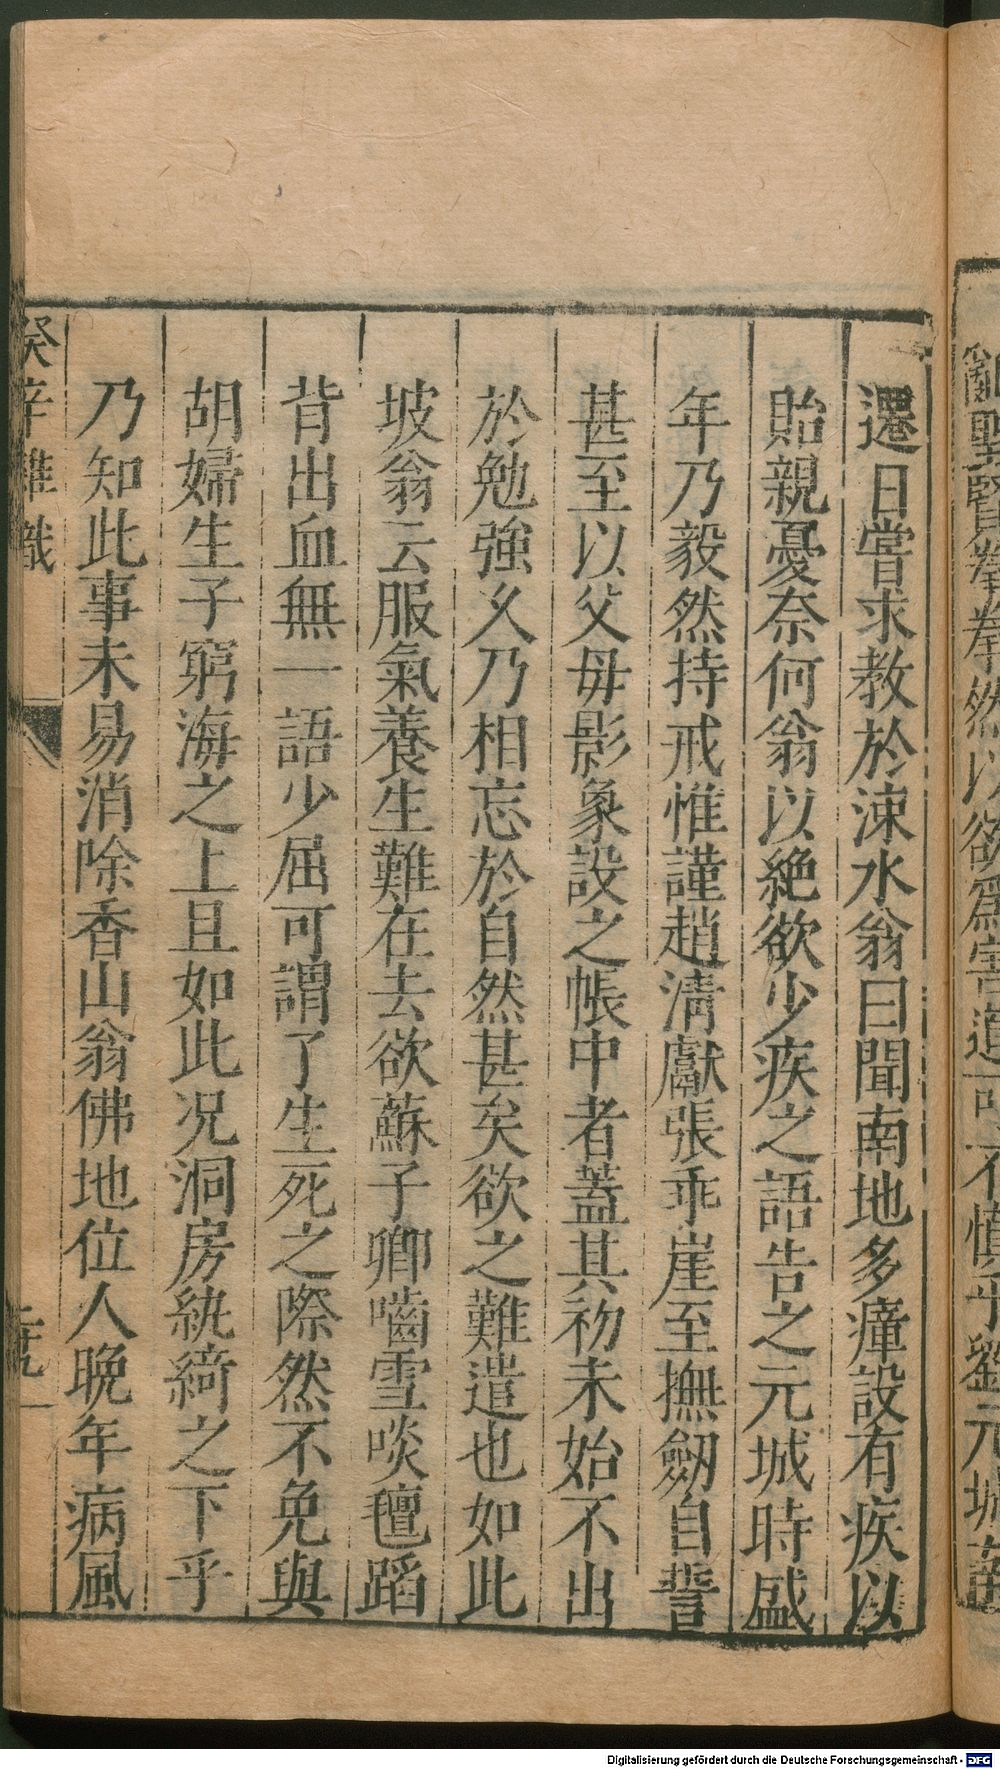 遷日嘗求教於涑水翁曰聞南地多瘴設有疾以
貽親憂奈何翁以絶欲少疾之語告之元城時盛
年乃毅然持戒惟謹趙清獻張乖崖至撫劒自誓
甚至以父母影象設之帳中者蓋其初未始不出
於勉強久乃相忘於自然甚矣欲之難遣也如此
坡翁云服氣養生難在去欲蘇子卿嚙雪啖氊蹈
背出血無一語少屈可謂了生死之際然不免與
胡婦生子窮海之上且如此况洞房紈綺之下乎
乃知此事未易消除香山翁佛地位人晚年病風
癸辛雜識
Digitalisierung gefördert durch die Deutsche Forschungsgemeinschaft - DFG